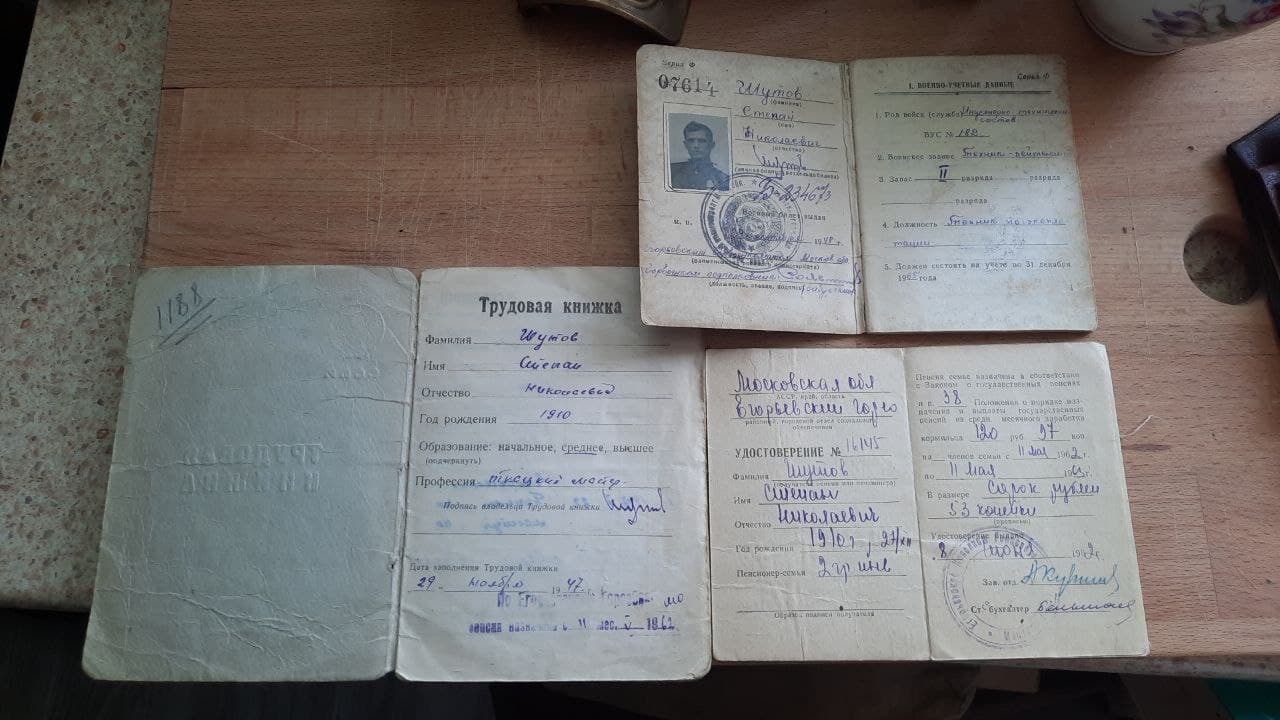 Серия Ф
07614
Шутов
(фамилия)
Степан
(имя)
Николаевич
(отчество)
Шутов
М. П.
Военный билет выдан
1948 г.
Серия Ф
I. ВОЕННО-УЧЕТНЫЕ ДАННЫЕ
1. Род войск (служба)
состав
ВУС №
2. Воинское звание Техник-лейтенант
3. Запас II разряда разряда
разряда
4. Должность Техник по эксплуа
тации
5. Должен состоять на учете по 31 декабря
19 года
1188
ТРУДОВАЯ
КНИЖКА
Трудовая книжка
Фамилия Шутов
Имя Степан
Отчество Николаевич
Год рождения 1910
Образование: начальное, среднее, высшее
(подчеркнуть)
Профессия ткацкий мастер
Подпись владельца Трудовой книжки Шутов
Дата заполнения Трудовой книжки
29 ноября 1947 г.
пенсия назначена с 11 мес. V 1962
Московская обл
АССР, край, область
Егорьевский Горсо
районный, городской отдел социального
обеспечения
УДОСТОВЕРЕНИЕ № 16145
Фамилия Шутов
Имя Степан
Отчество Николаевич
Год рождения 1910 г, 27/XII
Пенсионер-семья 2 гр инв
Образец подписи получателя
Пенсия семье назначена в соответствии
с Законом о государственных пенсиях
и п. 38 Положения о порядке наз-
начения и выплаты государственных
пенсий из средн. месячного заработка
кормильца 120 руб. 97 коп.
на членов семьи с 11 мая 1962 г.
по 11 мая 1963 г.
В размере Сорок рублей
53 копейки
(прописью)
Удостоверение выдано
8 июня 1962 г.
Зав. отд.
Ст. бухгалтер